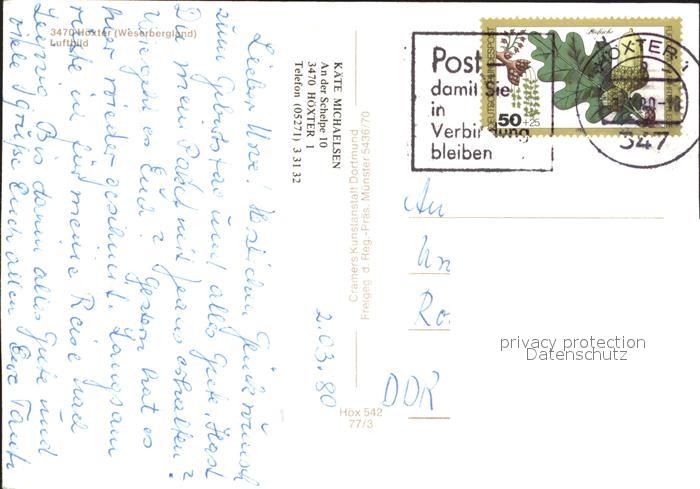 3470 Höxter (Weserbergland)
Luftbild
Liebe Herzlichen Glückwunsch
zum Geburtstag und alles Gute. Hast
Du mein Paket mit Jeans erhalten?
Wie geht es Euch? Gestern hat es
hier wieder geschneit. Langsam
rückt ja für meine Reise nach
Leipzig. Bis dann alles Gute und
viele Grüße Euch allen Eure Tante
KÄTE MICHAELSEN
An der Schelpe 10
3470 HÖXTER 1
Telefon (05271) 3 31 32
2.03.80
Cramers Kunstanstalt Dortmund
Freigeg. d. Reg.-Präs. Münster 5436/70
Höx 542
77/3
Post
damit Sie
in
Verbindung
bleiben
50+25
HÖXTER
347
An
Ro.
DDR
privacy protection
Datenschutz